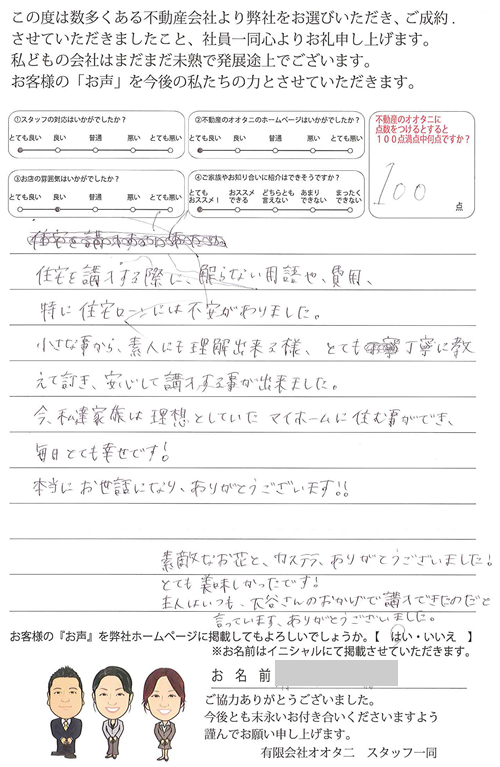 この度は数多くある不動産会社より弊社をお選びいただき、ご成約.
させていただきましたこと、社員一同心よりお礼申し上げます。
私どもの会社はまだまだ未熟で発展途上でございます。
お客様の「お声」を今後の私たちの力とさせていただきます。
①スタッフの対応はいかがでしたか?
とても良い 良い 普通 悪い とても悪い
②不動産のオオタニのホームページはいかがでしたか?
とても良い 良い 普通 悪い とても悪い
③お店の雰囲気はいかがでしたか?
とても良い 良い 普通 悪い とても悪い
④ご家族やお知り合いに紹介はできそうですか?
とてもおススメ! おススメできる どちらとも言えない あまりできない まったくできない
不動産のオオタニに
点数をつけるとすると
100点満点中何点ですか?
100
点
住宅を購入する際に、解らない用語や、費用、
特に住宅ローンには不安がありました。
小さな事から、素人にも理解出来る様、とても丁寧に教
えて頂き、安心して購入する事が出来ました。
今、私達家族は理想としていたマイホームに住む事ができ、
毎日とても幸せです!
本当にお世話になり、ありがとうございます!!
素敵なお花と、カステラ、ありがとうございました!
とても美味しかったです!
主人はいつも、大谷さんのおかげで購入できたのだと
言っています、ありがとうございました。
お客様の『お声』を弊社ホームページに掲載してもよろしいでしょうか。【 はい・いいえ 】
※お名前はイニシャルにて掲載させていただきます。
お 名 前
ご協力ありがとうございました。
今後とも末永いお付き合いくださいますよう
謹んでお願い申し上げます。
有限会社オオタニ スタッフ一同